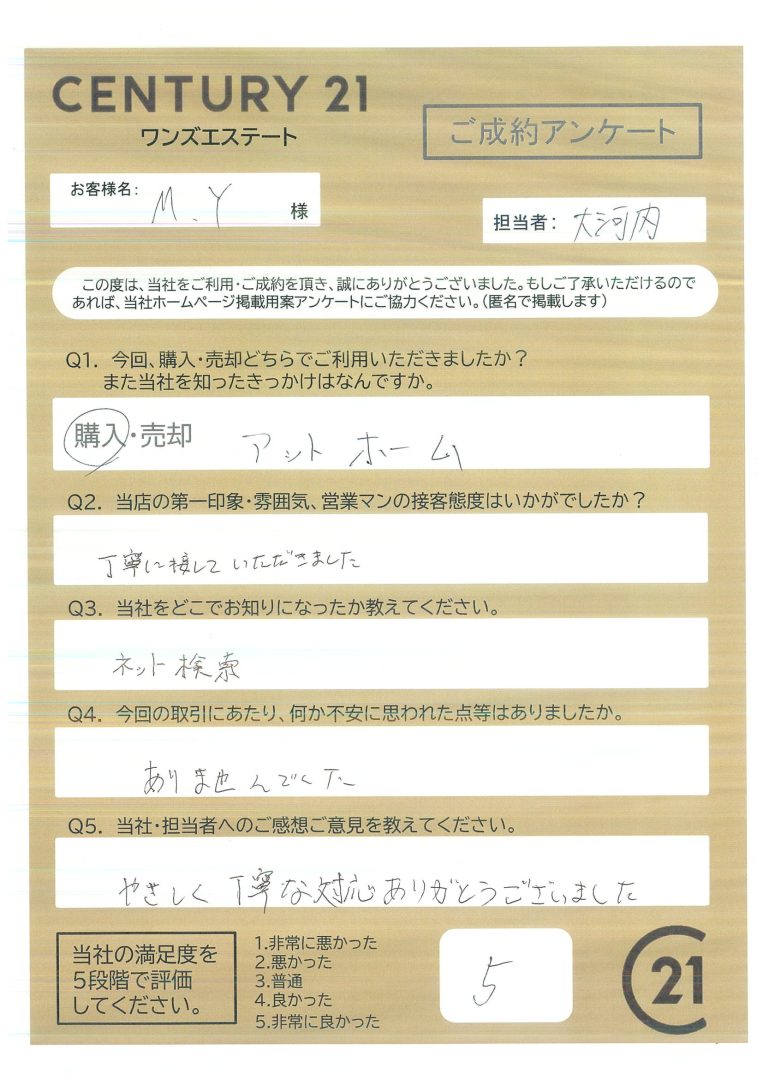 CENTURY 21
ワンズエステート
ご成約アンケート
お客様名： M.Y 様
担当者： 大河内
この度は、当社をご利用・ご成約を頂き、誠にありがとうございました。もしご了承いただけるので
あれば、当社ホームページ掲載用案アンケートにご協力ください。（匿名で掲載します）
Q1．今回、購入・売却どちらでご利用いただきましたか？
また当社を知ったきっかけはなんですか。
購入・売却 アットホーム
Q2．当店の第一印象・雰囲気、営業マンの接客態度はいかがでしたか？
丁寧に接していただきました
Q3．当社をどこでお知りになったか教えてください。
ネット検索
Q4．今回の取引にあたり、何か不安に思われた点等はありましたか。
ありませんでした
Q5．当社・担当者へのご感想ご意見を教えてください。
やさしく丁寧な対応ありがとうございました
当社の満足度を
5段階で評価
してください。
1.非常に悪かった
2.悪かった
3.普通
4.良かった
5.非常に良かった
5
21